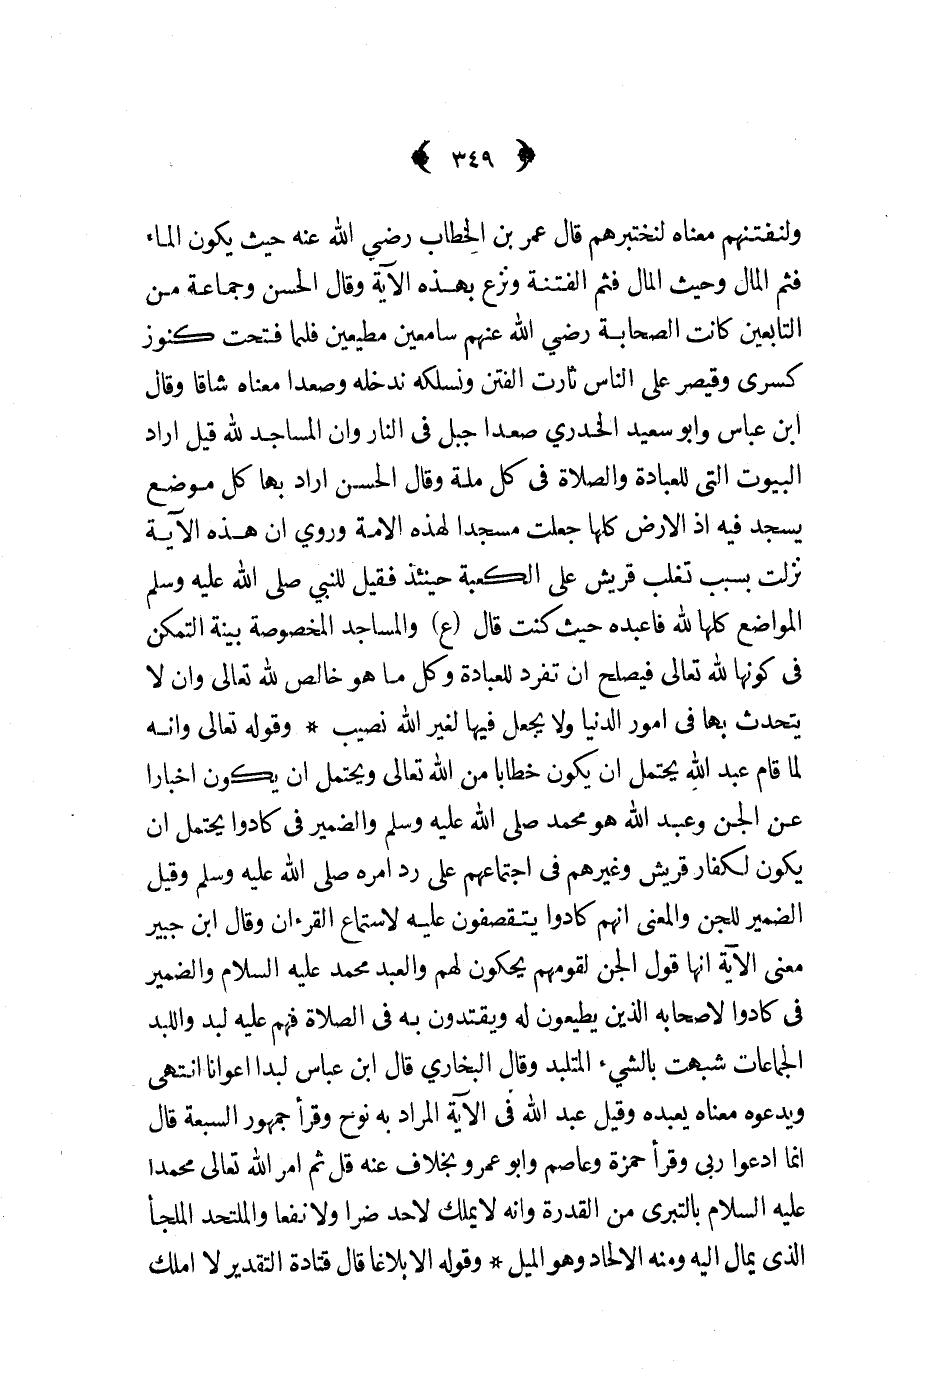 ﴿ ٣٤٩ ﴾
ولنفتنهم معناه لنختبرهم قال عمر بن الخطاب رضي الله عنه حيث يكون الماء
فثم المال وحيث المال فثم الفتنة ونزع بهذه الآية وقال الحسن وجماعة من
التابعين كانت الصحابة رضي الله عنهم سامعين مطيعين فلما فتحت كنوز
كسرى وقيصر على الناس ثارت الفتن ونسلكه ندخله وصعدا معناه شاقا وقال
ابن عباس وابو سعيد الخدري صعدا جبل فى النار وان المساجد لله قيل اراد
البيوت التى للعبادة والصلاة فى كل ملة وقال الحسن اراد بها كل موضع
يسجد فيه اذ الارض كلها جعلت مسجدا لهذه الامة وروي ان هذه الآية
نزلت بسبب تغلب قريش على الكعبة حينئذ فقيل للنبي صلى الله عليه وسلم
المواضع كلها لله فاعبده حيث كنت قال (ع) والمساجد المخصوصة بينة التمكن
فى كونها لله تعالى فيصلح ان تفرد للعبادة وكل ما هو خالص لله تعالى وان لا
يتحدث بها فى امور الدنيا ولا يجعل فيها لغير الله نصيب * وقوله تعالى وانه
لما قام عبد الله يحتمل ان يكون خطابا من الله تعالى ويحتمل ان يكون اخبارا
عن الجن وعبد الله هو محمد صلى الله عليه وسلم والضمير فى كادوا يحتمل ان
يكون لكفار قريش وغيرهم فى اجتماعهم على رد امره صلى الله عليه وسلم وقيل
الضمير للجن والمعنى انهم كادوا يتقصفون عليه لاستماع القرءان وقال ابن جبير
معنى الآية انها قول الجن لقومهم يحكون لهم والعبد محمد عليه السلام والضمير
فى كادوا لاصحابه الذين يطيعون له ويقتدون به فى الصلاة فهم عليه لبد واللبد
الجماعات شبهت بالشيء المتلبد وقال البخاري قال ابن عباس لبدا اعوانا انتهى
ويدعوه معناه يعبده وقيل عبد الله فى الآية المراد به نوح وقرأ جمهور السبعة قال
انما ادعوا ربى وقرأ حمزة وعاصم وابو عمرو بخلاف عنه قل ثم امر الله تعالى محمدا
عليه السلام بالتبرى من القدرة وانه لا يملك لاحد ضرا ولا نفعا والملتحد الملجأ
الذى يمال اليه ومنه الالحاد وهو الميل * وقوله الا بلاغا قال قتادة التقدير لا املك